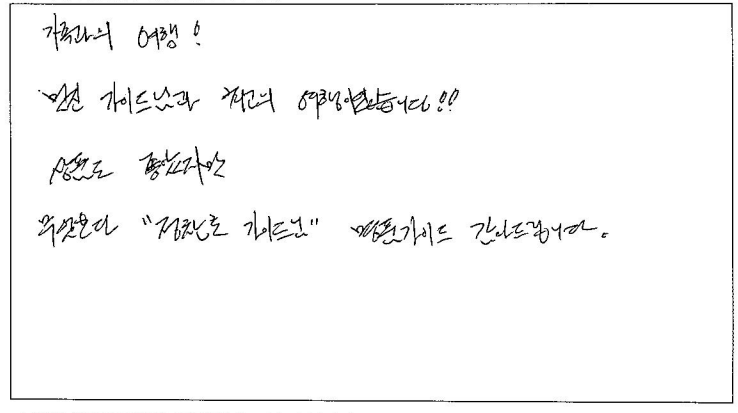 가족과의 여행!
멋진 가이드님과 최고의 여행이였습니다!!
상품도 좋았지만
무엇보다 "정찬호 가이드님" 명품가이드 감사드립니다.